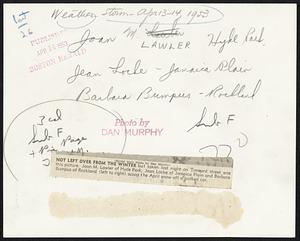 Weather Storm - Apr 13-14 1953
Joan M. Lawler Hyde Park
LAWLER
PUBLISHED
APR 14 1953
BOSTON HERALD
Jean Locke - Jamaica Plain
Barbara Bumpus - Rockland
3 col
Photo by
DAN MURPHY
NOT LEFT OVER FROM THE WINTER but taken last night on Tremont street was
this picture. Joan M. Lawler of Hyde Park, Jean Locke of Jamaica Plain and Barbara
Bumpus of Rockland (left to right) scoop the April snow off a parked car.